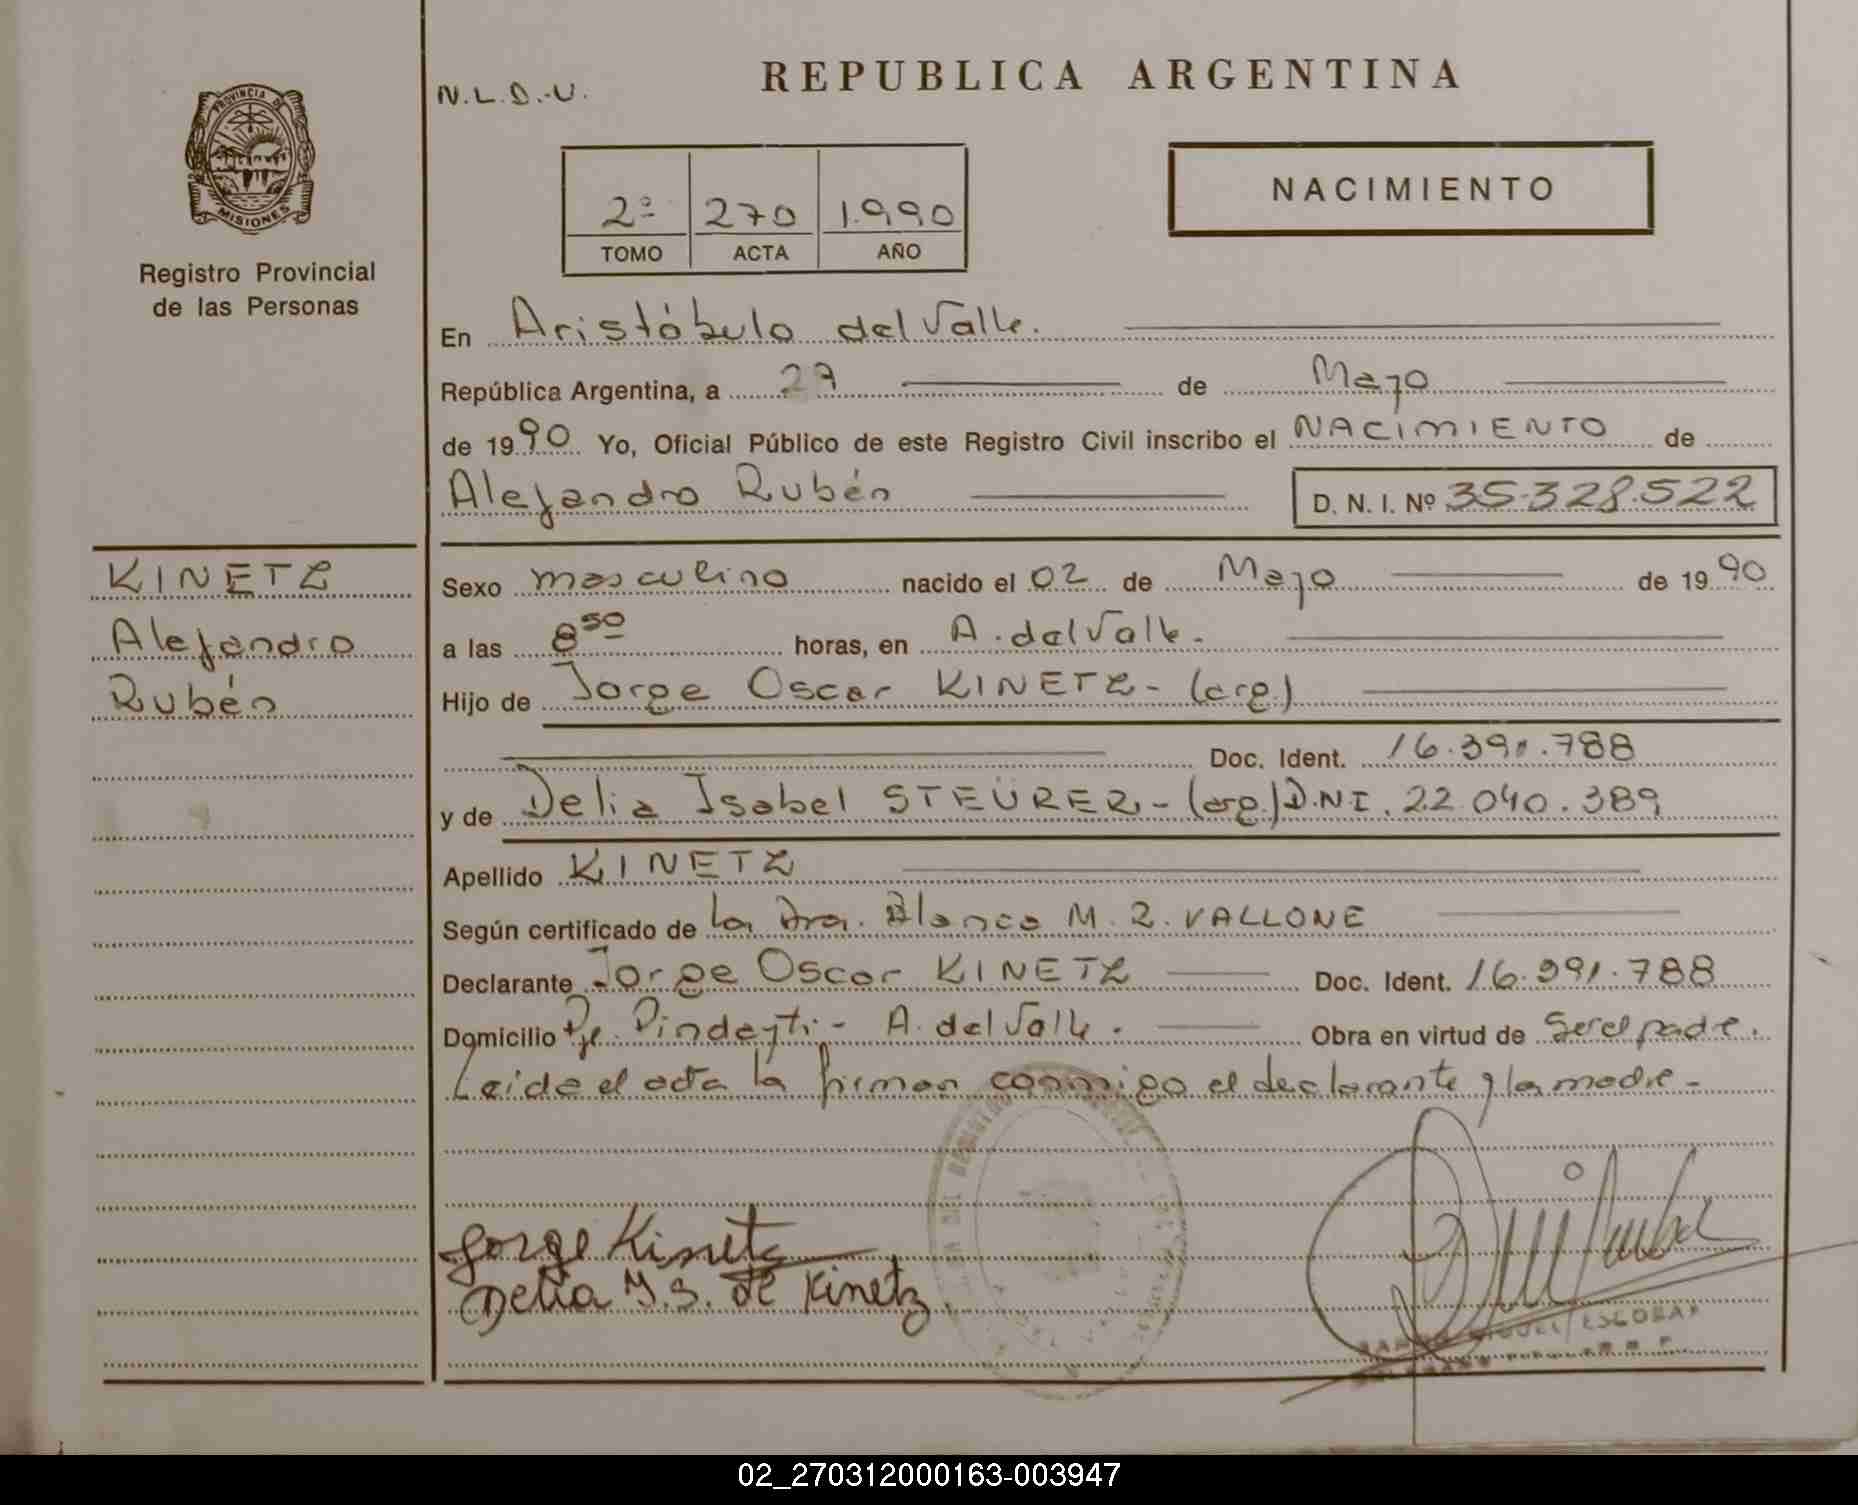 N.L.D.-U.
REPUBLICA ARGENTINA
PROVINCIA DE
MISIONES
Registro Provincial
de las Personas
2º 270 1.990
TOMO ACTA AÑO
NACIMIENTO
En Aristóbulo del Valle.
República Argentina, a 27 de Mayo
de 1990 Yo, Oficial Público de este Registro Civil inscribo el NACIMIENTO de
Alejandro Rubén D. N. I. Nº 35.328.522
KINETZ
Alejandro
Rubén
Sexo masculino nacido el 02 de Mayo de 1990
a las 8 50 horas, en A. del Valle.
Hijo de Jorge Oscar KINETZ - (arg.)
Doc. Ident. 16.391.788
y de Delia Isabel STEÜRER - (arg.) D.N.I. 22.040.389
Apellido KINETZ
Según certificado de la Dra. Blanca M. R. VALLONE
Declarante Jorge Oscar KINETZ Doc. Ident. 16.391.788
Domicilio Pje. Pindayti - A. del Valle. Obra en virtud de Ser el padre.
Leída el acta la firman conmigo el declarante y la madre -
Jorge Kinetz
Delia I. S. de Kinetz.
MIGUEL ESCOBAR
02_270312000163-003947